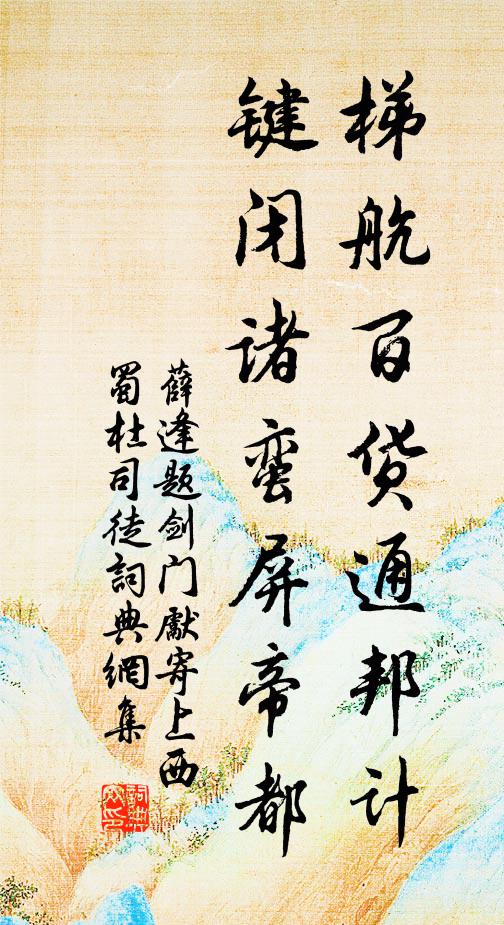 梯航百货通邦计
键闭诸蛮屏帝都
薛逢题剑门献寄上西
蜀杜司徒词典網集